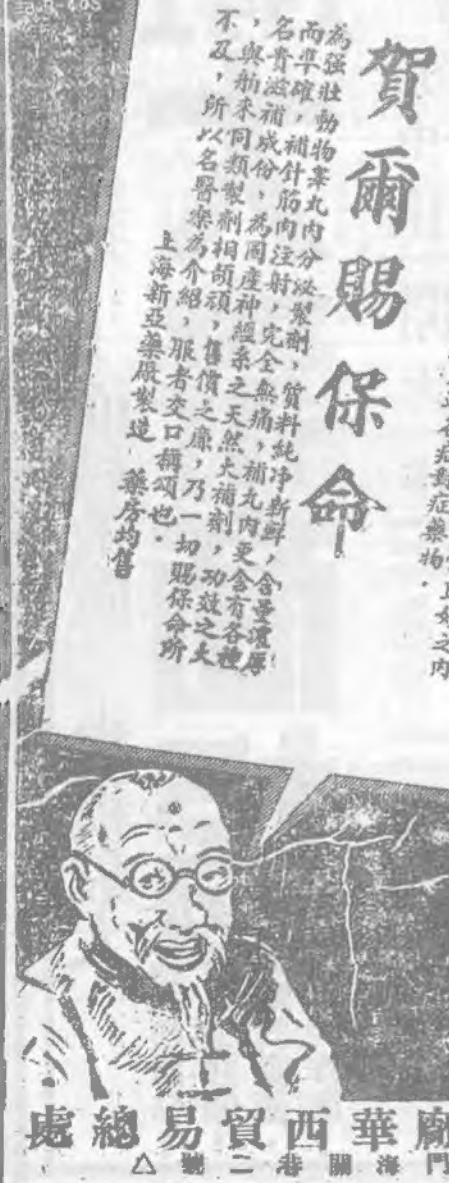 症對症藥物．
賀爾賜保命
為强壯動物睾丸內分泌製劑，質料純净新鮮，含量濃厚
而準確，補針筋肉注射，完全無痛，補丸內更含有各種
名貴滋補成份，為國產神經系之天然大補劑，功效之大
，與舶來同類製劑相頡頏，售價之廉，乃一切賜保命所
不及，所以名醫樂為介紹，服者交口稱頌也．
上海新亞藥厰製造　藥房均售
廟華西貿易總處
門海關巷二號△